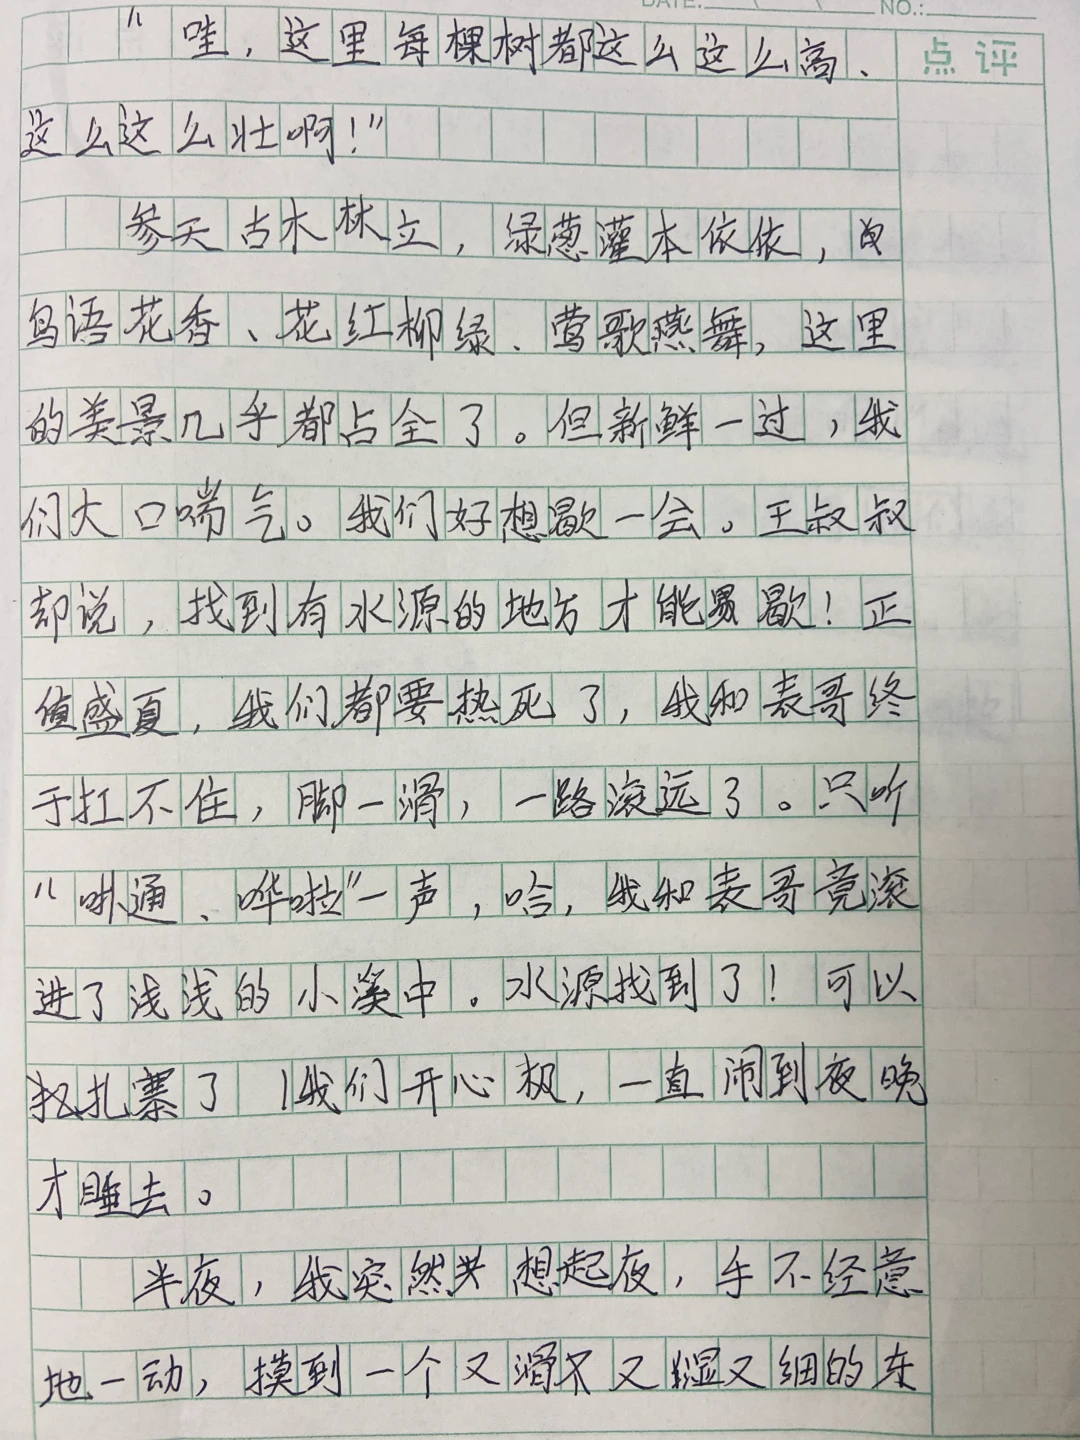 DATE: NO.:
点评
“哇，这里每棵树都这么这么高、
这么这么壮啊！”
参天古木林立，绿葱灌本依依，
鸟语花香、花红柳绿、莺歌燕舞，这里
的美景几乎都占全了。但新鲜一过，我
们大口喘气。我们好想歇一会。王叔叔
却说，找到有水源的地方才能歇！正
值盛夏，我们都要热死了，我和表哥终
于扛不住，脚一滑，一路滚远了。只听
“咻通、哗啦”一声，哈，我和表哥竟滚
进了浅浅的小溪中。水源找到了！可以
扎寨了！我们开心极，一直闹到夜晚
才睡去。
半夜，我突然想起夜，手不经意
地一动，摸到一个又滑又湿又细的东